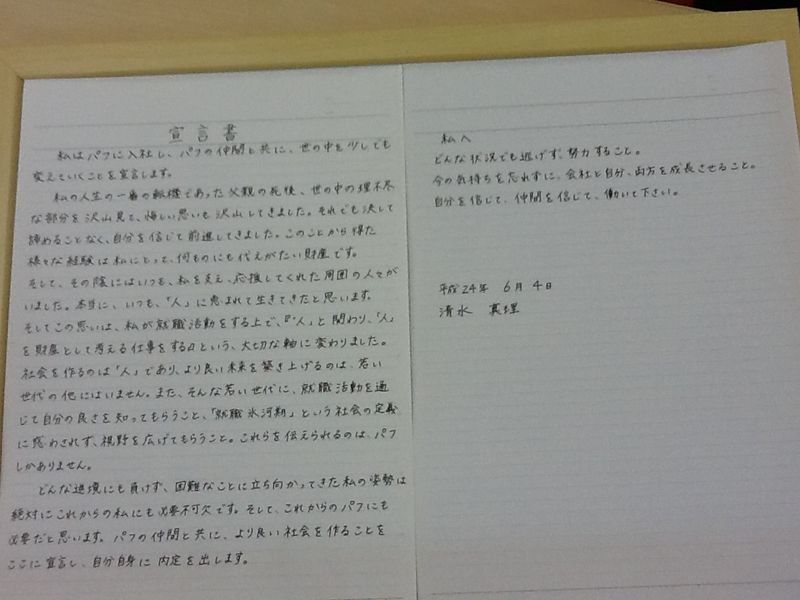 宣言書
私はパフに入社し、パフの仲間と共に、世の中を少しでも
変えていくことを宣言します。
私の人生の一番の転機であった父親の死後、世の中の理不尽
な部分を沢山見て、悔しい思いも沢山してきました。それでも決して
諦めることなく、自分を信じて前進してきました。このことから得た
様々な経験は私にとって、何ものにも代えがたい財産です。
そして、その陰にはいつも、私を支え、応援してくれた周囲の人々が
いました。本当に、いつも、「人」に恵まれて生きてきたと思います。
そしてこの思いは、私が就職活動をする上で、『「人」と関わり、「人」
を財産として考える仕事をする』という、大切な軸に変わりました。
社会を作るのは「人」であり、より良い未来を築き上げるのは、若い
世代の他にはいません。また、そんな若い世代に、就職活動を通
じて自分の良さを知ってもらうこと、「就職氷河期」という社会の定義
に惑わされず、視野を広げてもらうこと。これらを伝えられるのは、パフ
しかありません。
どんな逆境にも負けず、困難なことに立ち向かってきた私の姿勢は
絶対にこれからの私にも必要不可欠です。そして、これからのパフにも
必要だと思います。パフの仲間と共に、より良い社会を作ることを
ここに宣言し、自分自身に内定を出します。
私へ
どんな状況でも逃げず、努力すること。
今の気持ちを忘れずに、会社と自分、両方を成長させること。
自分を信じて、仲間を信じて、働いて下さい。
平成24年 6月 4日
清水 真理